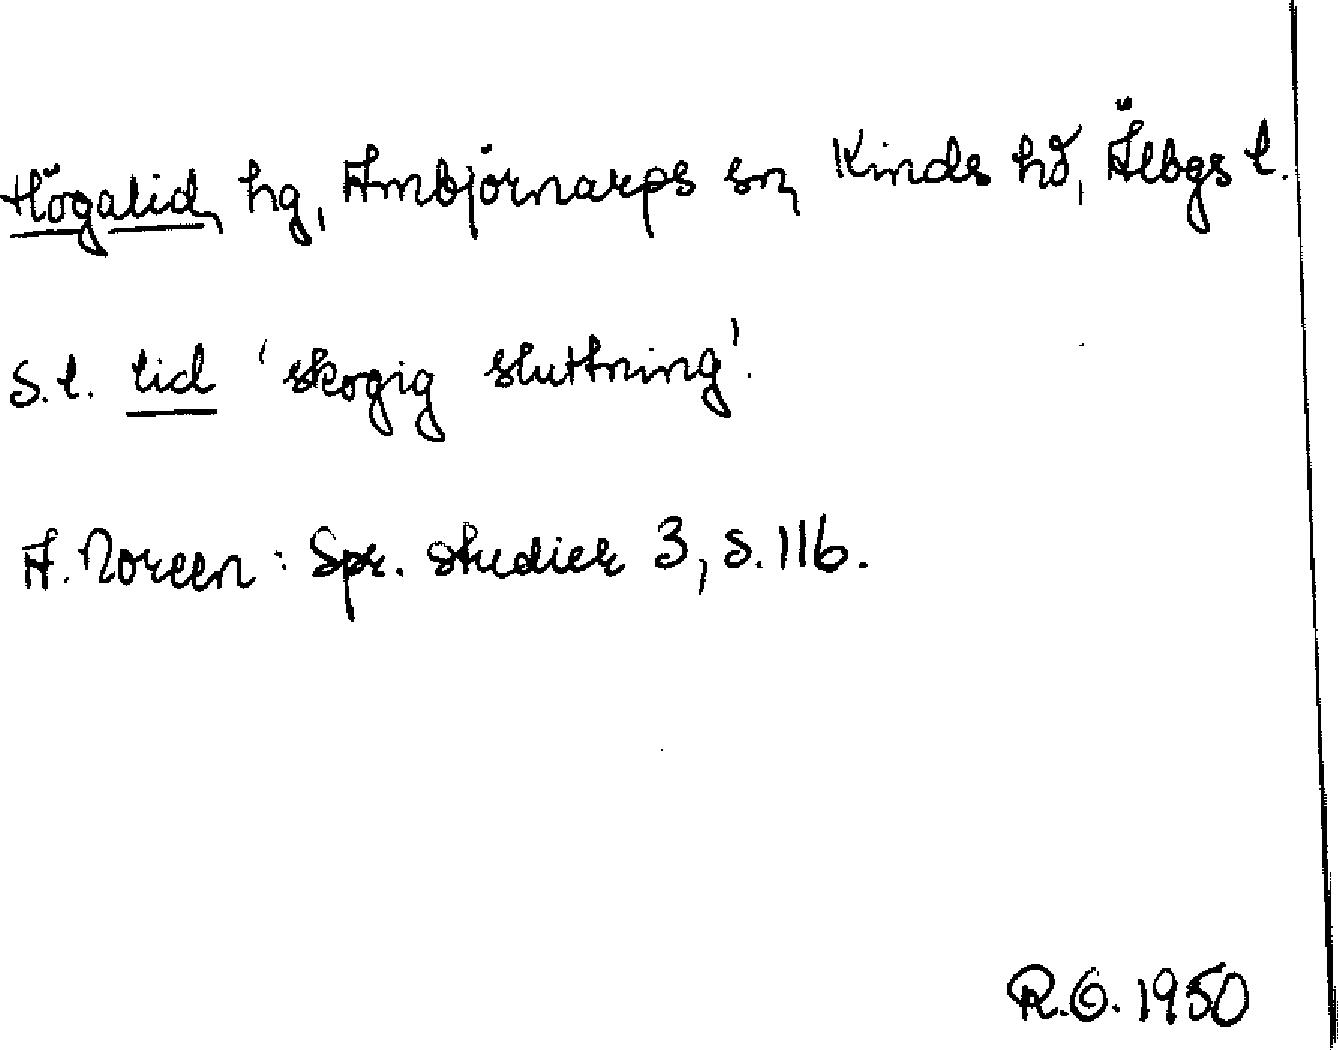 Högalid, hg, Ambjörnarps sn, Kinds hd, Älbgs l.
S.l. lid 'skogig sluttning'.
A. Noreen: Spr. studier 3, s. 116.
R.G. 1950